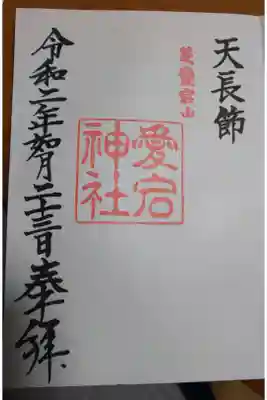 天長節
芝愛宕山
愛宕神社
令和二年如月二十三日奉拝